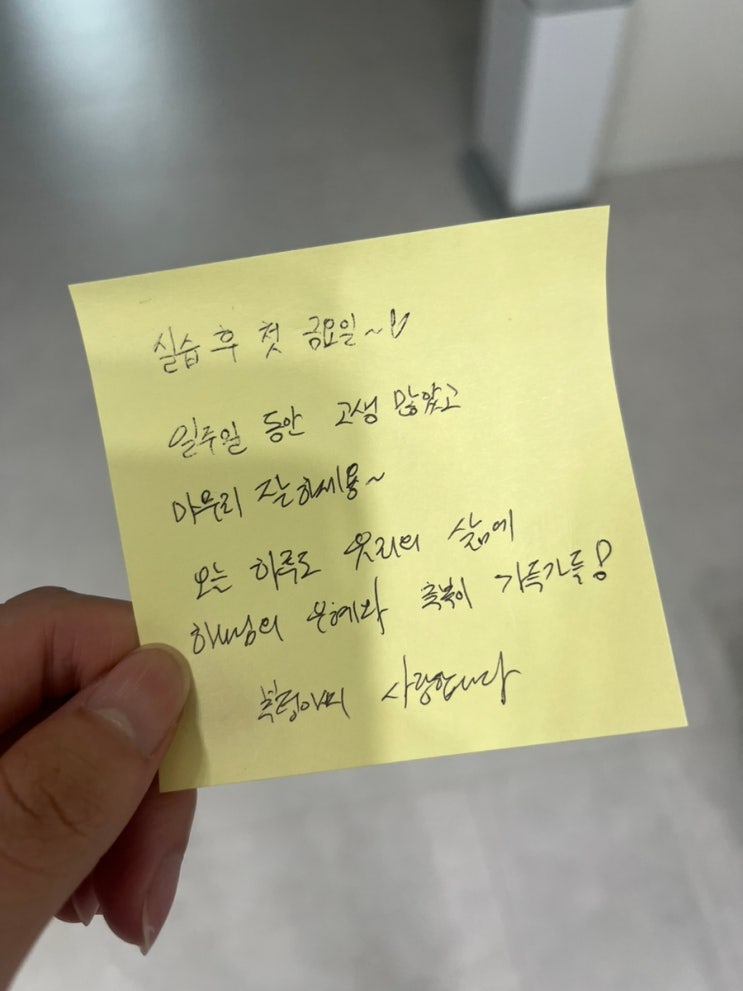 실습 후 첫 금요일~♡
일주일 동안 고생 많았고
마무리 잘 하세용~
오늘 하루도 우리의 삶에
하나님의 은혜와 축복이 가득가득!
사랑합니다